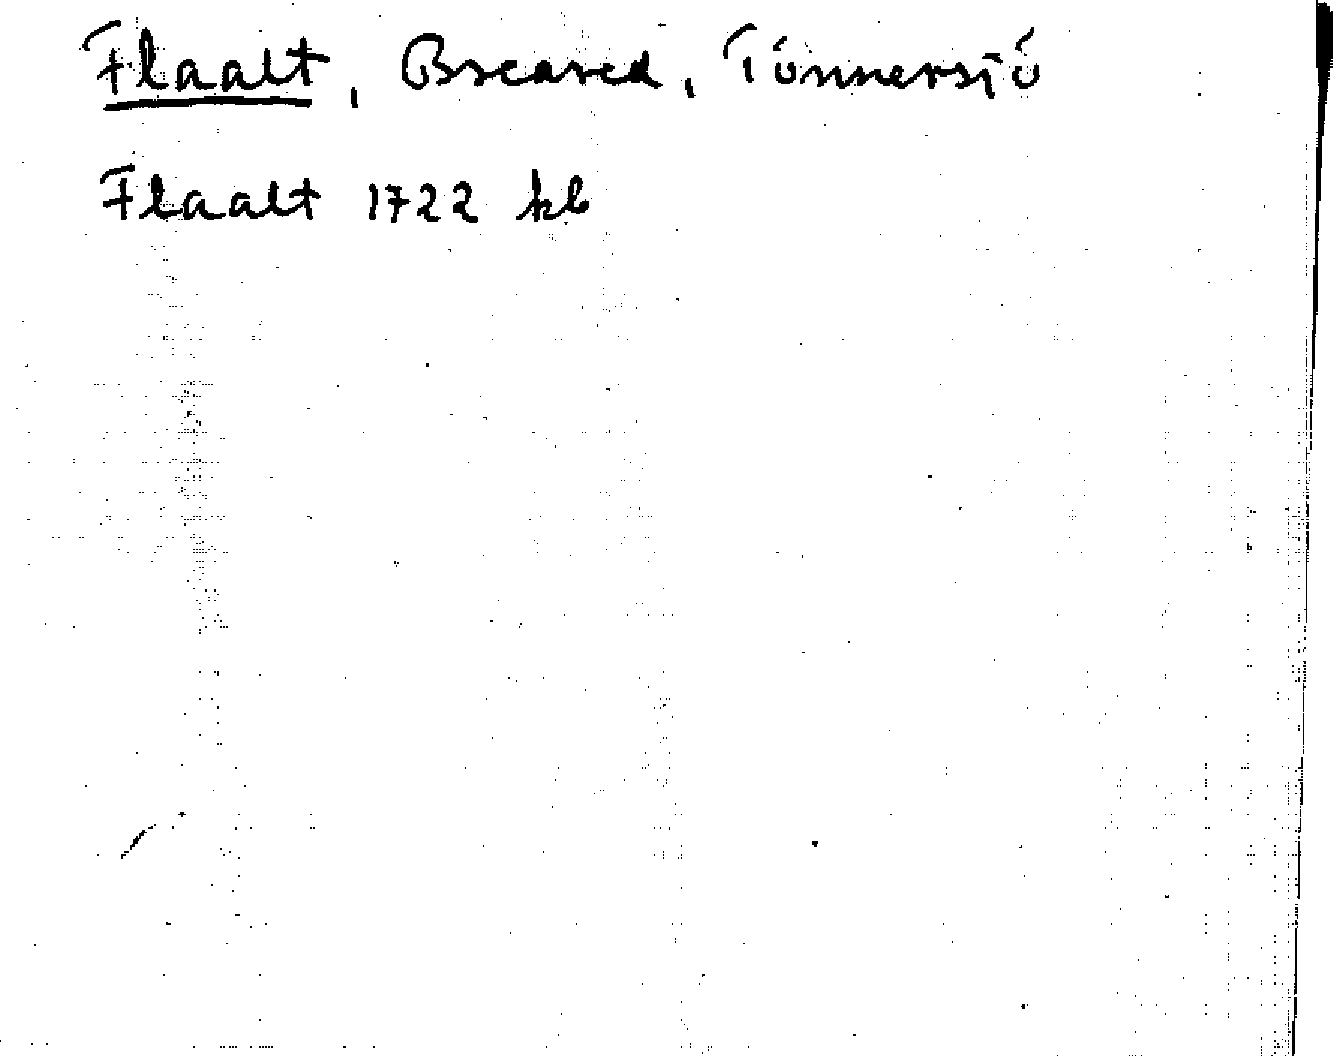 Flaalt, Breared, Tönnersjö
Flaalt 1722 kb